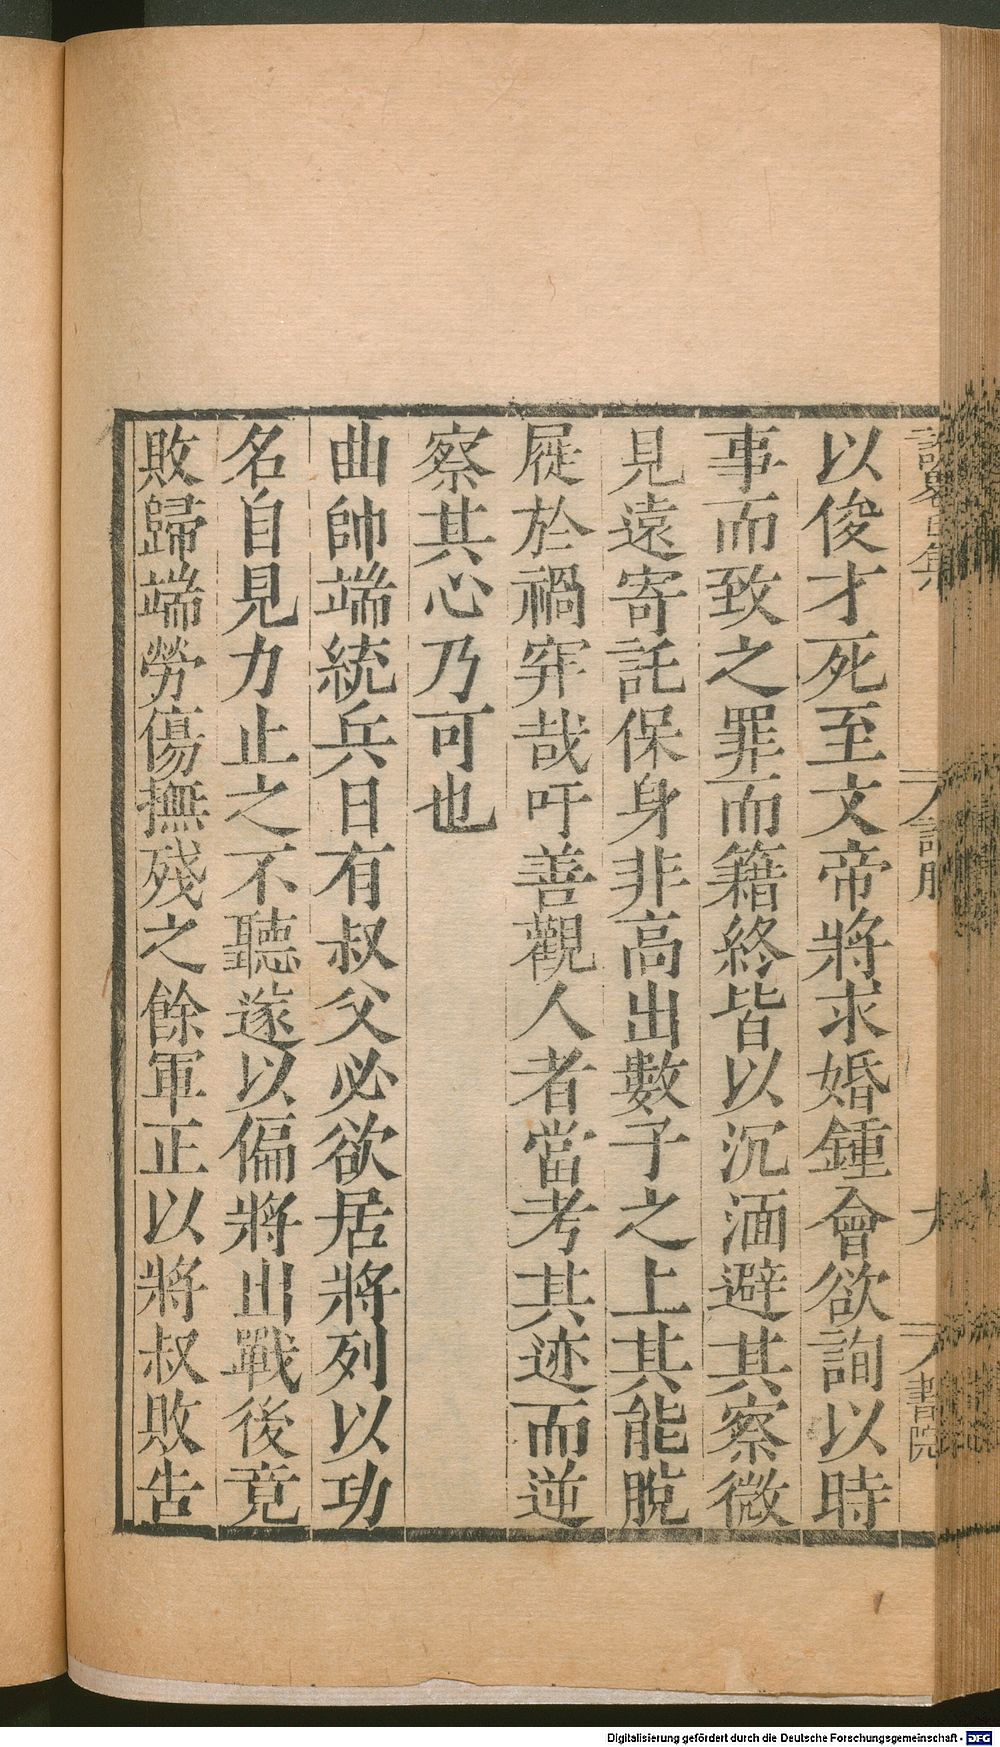 以俊才死至文帝將求婚鍾會欲詢以時
事而致之罪而籍終皆以沉湎避其察微
見遠寄託保身非高出數子之上其能脫
屣於禍穽哉吁善觀人者當考其迹而逆
察其心乃可也
曲帥端統兵日有叔父必欲居將列以功
名自見力止之不聽遂以偏將出戰後竟
敗歸端勞傷撫殘之餘軍正以將叔敗告
書院
Digitalisierung gefördert durch die Deutsche Forschungsgemeinschaft - DFG